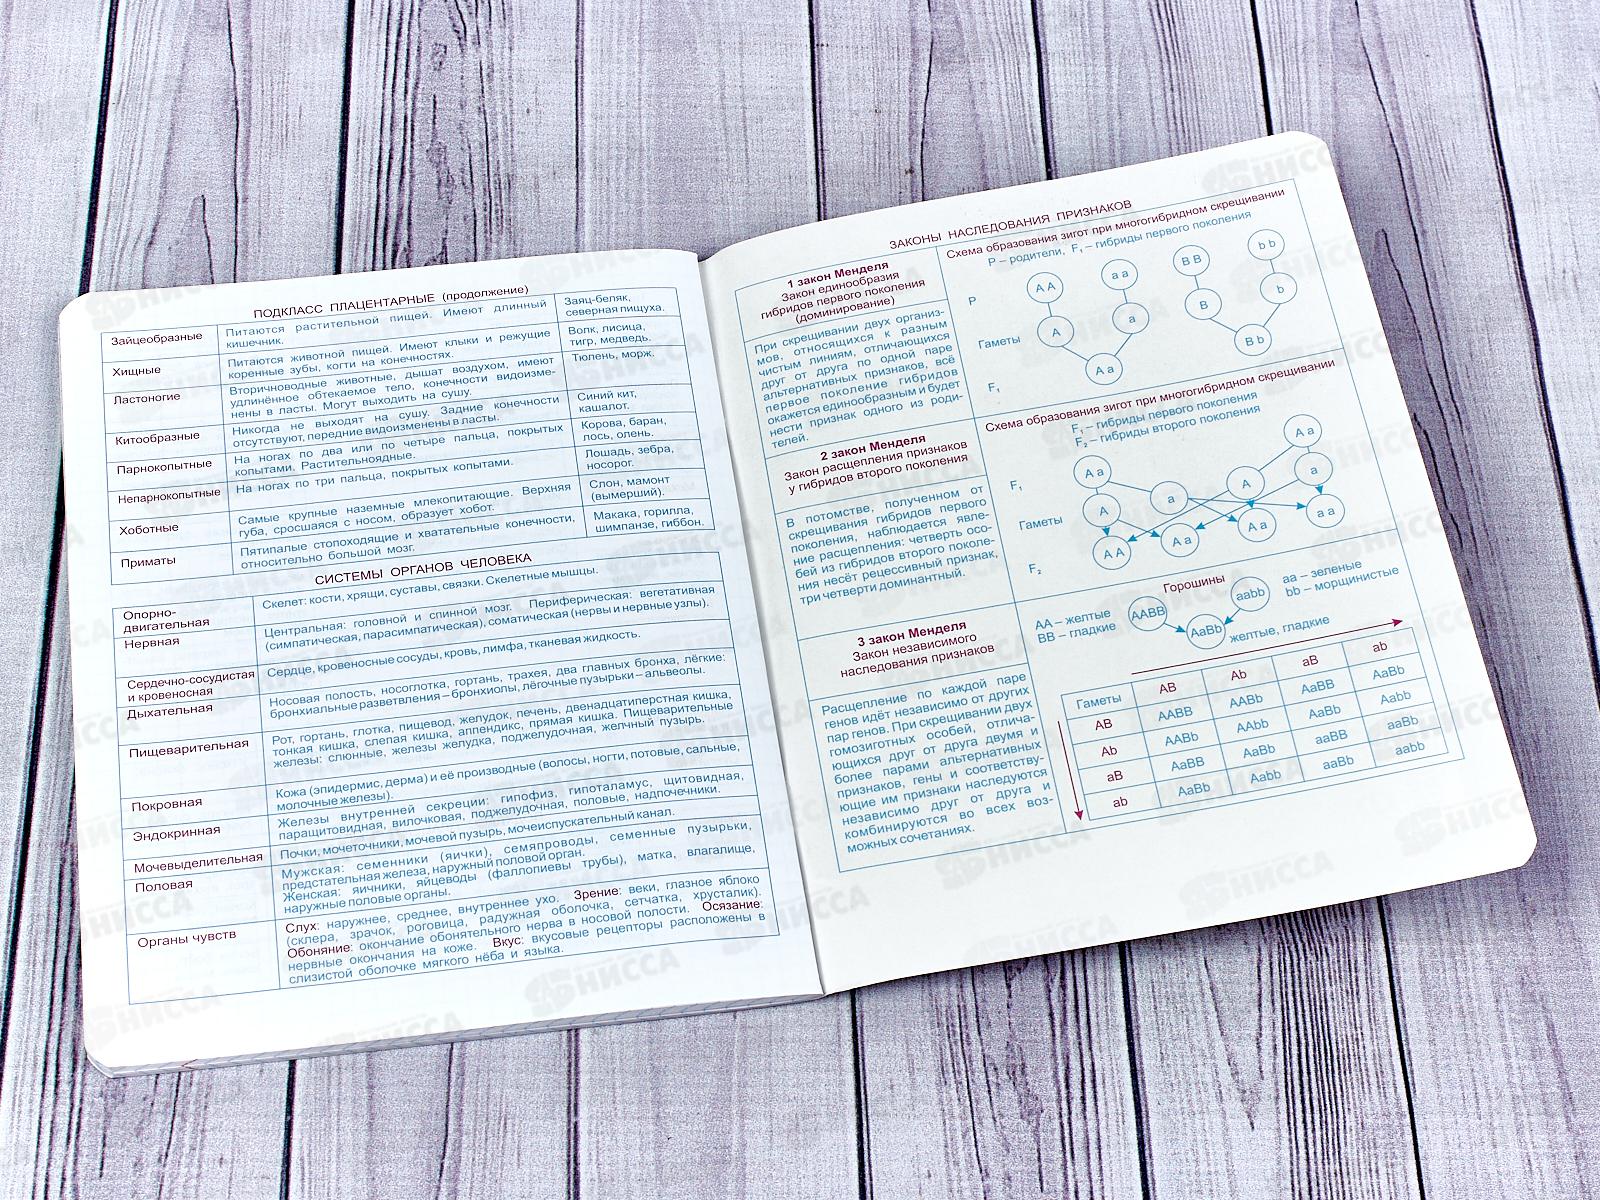 ПОДКЛАСС ПЛАЦЕНТАРНЫЕ (продолжение)
Зайцеобразные
Питаются растительной пищей. Имеют длинный
кишечник.
Заяц-беляк,
северная пищуха.
Хищные
Питаются животной пищей. Имеют клыки и режущие
коренные зубы, когти на конечностях.
Волк, лисица,
тигр, медведь.
Ластоногие
Вторичноводные животные, дышат воздухом, имеют
удлинённое обтекаемое тело, конечности видоизме-
нены в ласты. Могут выходить на сушу.
Тюлень, морж.
Китообразные
Никогда не выходят на сушу. Задние конечности
отсутствуют, передние видоизменены в ласты.
Синий кит,
кашалот.
Парнокопытные
На ногах по два или по четыре пальца, покрытых
копытами. Растительноядные.
Корова, баран,
лось, олень.
Непарнокопытные
На ногах по три пальца, покрытых копытами.
Лошадь, зебра,
носорог.
Хоботные
Самые крупные наземные млекопитающие. Верхняя
губа, сросшаяся с носом, образует хобот.
Слон, мамонт
(вымерший).
Приматы
Пятипалые стопоходящие и хватательные конечности,
относительно большой мозг.
Макака, горилла,
шимпанзе, гиббон.
СИСТЕМЫ ОРГАНОВ ЧЕЛОВЕКА
Опорно-
двигательная
Скелет: кости, хрящи, суставы, связки. Скелетные мышцы.
Нервная
Центральная: головной и спинной мозг. Периферическая: вегетативная
(симпатическая, парасимпатическая), соматическая (нервы и нервные узлы).
Сердечно-сосудистая
и кровеносная
Сердце, кровеносные сосуды, кровь, лимфа, тканевая жидкость.
Дыхательная
Носовая полость, носоглотка, гортань, трахея, два главных бронха, лёгкие:
бронхиальные разветвления – бронхиолы, лёгочные пузырьки – альвеолы.
Пищеварительная
Рот, гортань, глотка, пищевод, желудок, печень, двенадцатиперстная кишка,
тонкая кишка, слепая кишка, аппендикс, прямая кишка. Пищеварительные
железы: слюнные, железы желудка, поджелудочная, желчный пузырь.
Покровная
Кожа (эпидермис, дерма) и её производные (волосы, ногти, потовые, сальные,
молочные железы).
Эндокринная
Железы внутренней секреции: гипофиз, гипоталамус, щитовидная,
паращитовидная, вилочковая, поджелудочная, половые, надпочечники.
Мочевыделительная
Почки, мочеточники, мочевой пузырь, мочеиспускательный канал.
Половая
Мужская: семенники (яички), семяпроводы, семенные пузырьки,
предстательная железа, наружный половой орган.
Женская: яичники, яйцеводы (фаллопиевы трубы), матка, влагалище,
наружные половые органы.
Органы чувств
Слух: наружнее, среднее, внутреннее ухо. Зрение: веки, глазное яблоко
(склера, зрачок, роговица, радужная оболочка, сетчатка, хрусталик).
Обоняние: окончание обонятельного нерва в носовой полости. Осязание:
нервные окончания на коже. Вкус: вкусовые рецепторы расположены в
слизистой оболочке мягкого нёба и языка.
ЗАКОНЫ НАСЛЕДОВАНИЯ ПРИЗНАКОВ
1 закон Менделя
Закон единообразия
гибридов первого поколения
(доминирование)
При скрещивании двух организ-
мов, относящихся к разным
чистым линиям, отличающихся
друг от друга по одной паре
альтернативных признаков, всё
первое поколение гибридов
окажется единообразным и будет
нести признак одного из роди-
телей.
Схема образования зигот при многогибридном скрещивании
P – родители, F₁ – гибриды первого поколения
P
A A
a a
B B
b b
Гаметы
A
a
B
b
F₁
A a
B b
2 закон Менделя
Закон расщепления признаков
у гибридов второго поколения
В потомстве, полученном от
скрещивания гибридов первого
поколения, наблюдается явле-
ние расщепления: четверть осо-
бей из гибридов второго поколе-
ния несёт рецессивный признак,
три четверти доминантный.
Схема образования зигот при многогибридном скрещивании
F₁ – гибриды первого поколения
F₂ – гибриды второго поколения
F₁
A a
A a
Гаметы
A
a
A
a
F₂
A A
A a
A a
a a
3 закон Менделя
Закон независимого
наследования признаков
Расщепление по каждой паре
генов идёт независимо от других
пар генов. При скрещивании двух
гомозиготных особей, отлича-
ющихся друг от друга двумя и
более парами альтернативных
признаков, гены и соответству-
ющие им признаки наследуются
независимо друг от друга и
комбинируются во всех воз-
можных сочетаниях.
Горошины
AA – желтые
BB – гладкие
AABB
aabb
aa – зеленые
bb – морщинистые
AaBb
желтые, гладкие
Гаметы AB Ab aB ab
AB AABB AABb AaBB AaBb
Ab AABb AAbb AaBb Aabb
aB AaBB AaBb aaBB aaBb
ab AaBb Aabb aaBb aabb
НИССА